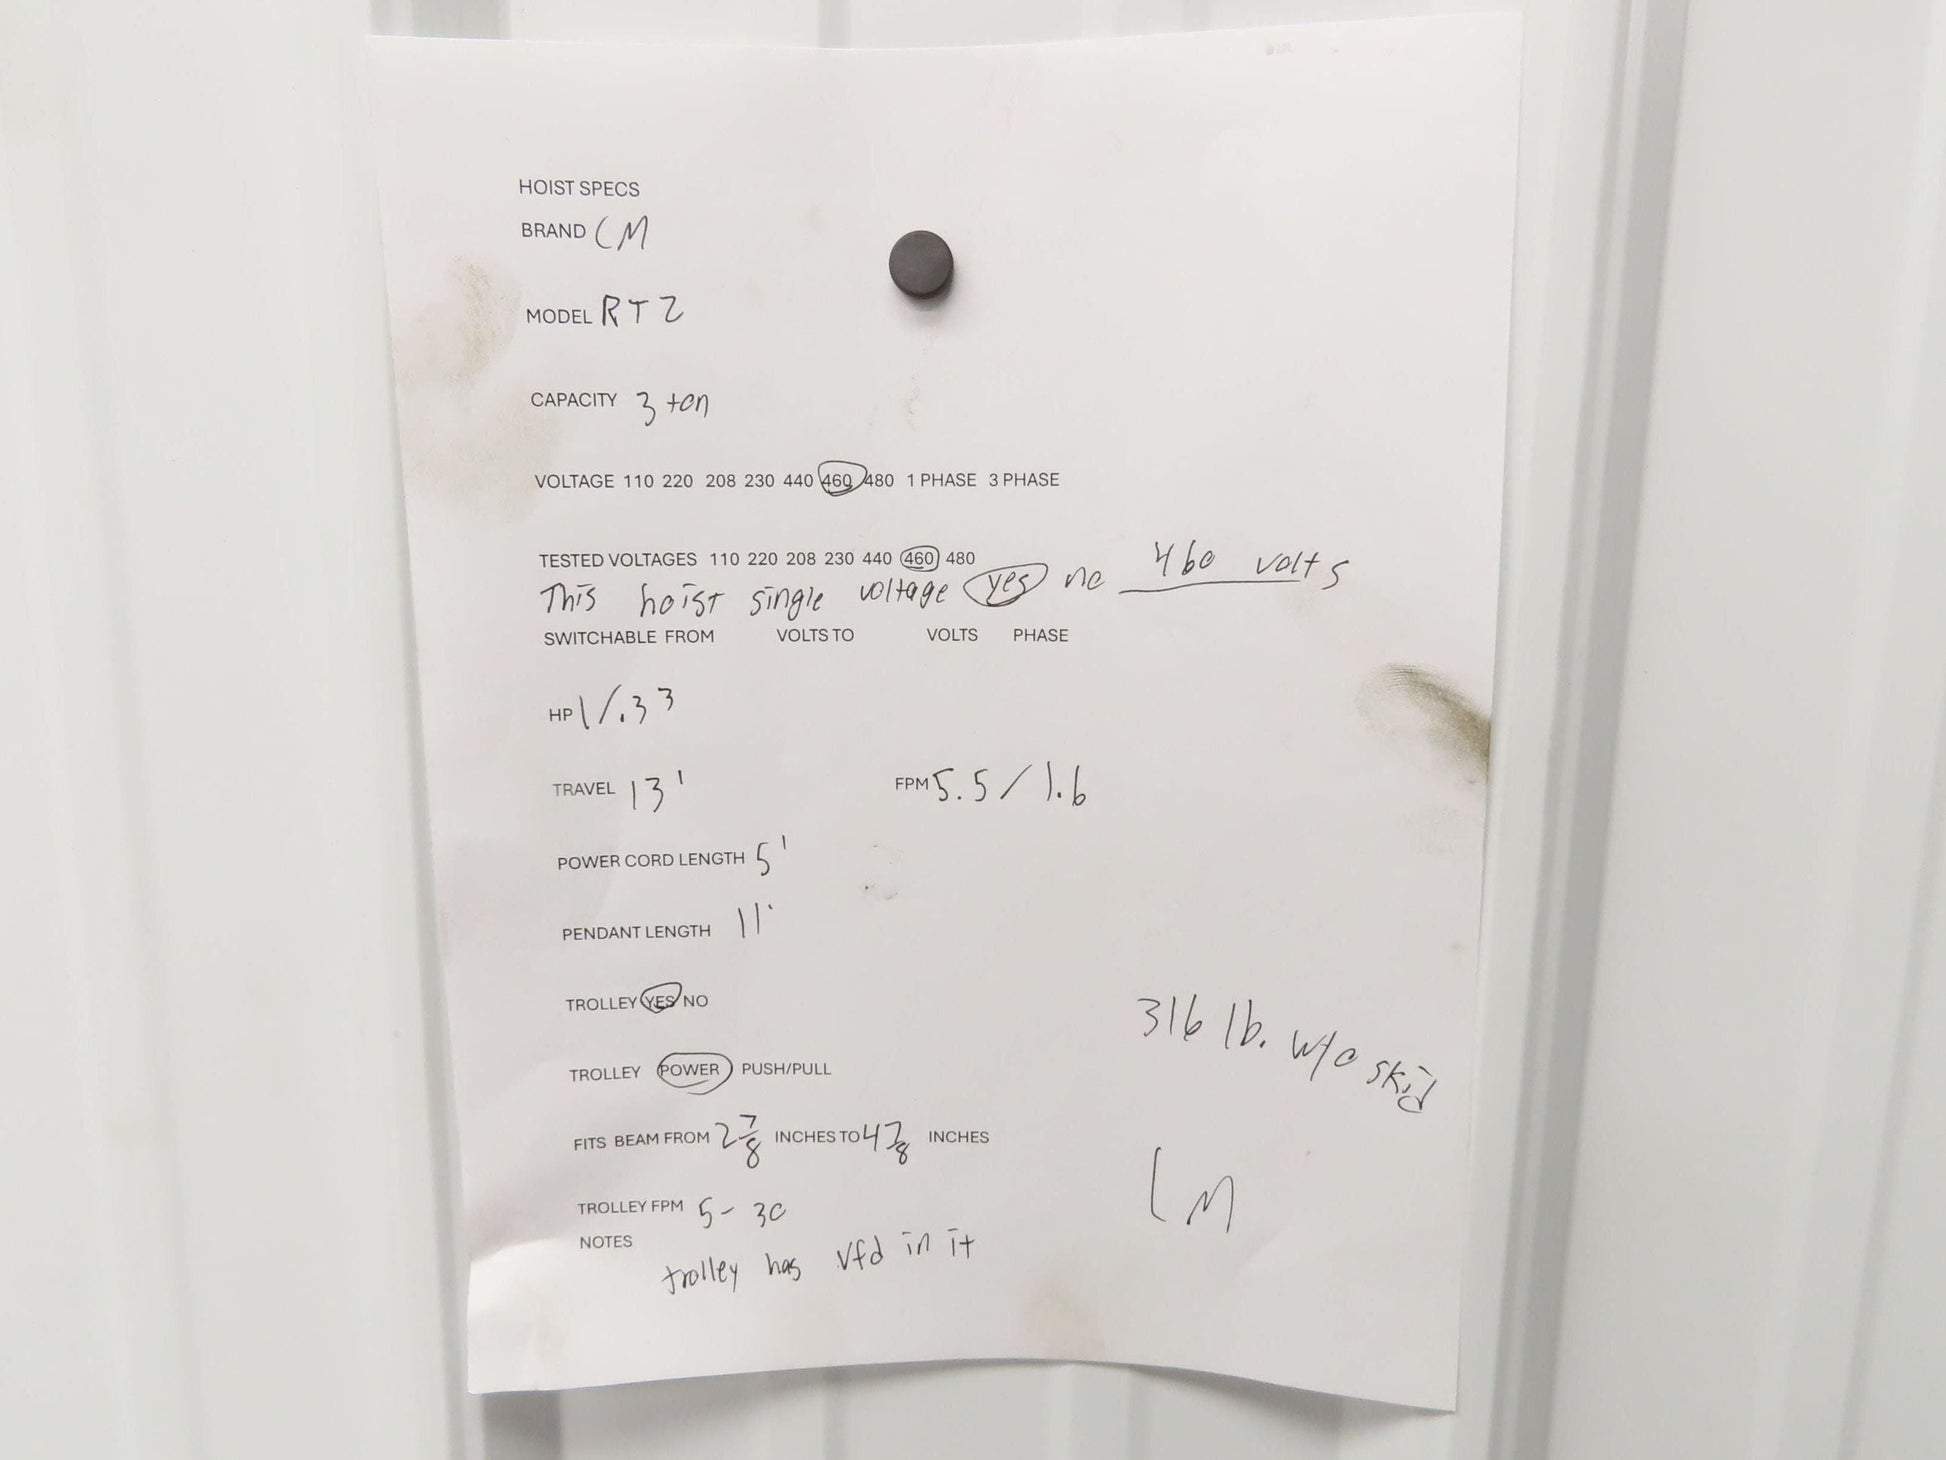 HOIST SPECS
BRAND CM
MODEL RT2
CAPACITY 3 ton
VOLTAGE 110 220 208 230 440 460 480 1 PHASE 3 PHASE
TESTED VOLTAGES 110 220 208 230 440 460 480
This hoist single voltage yes no 460 volts
SWITCHABLE FROM VOLTS TO VOLTS PHASE
HP 1/.33
TRAVEL 13' FPM 5.5/1.6
POWER CORD LENGTH 5'
PENDANT LENGTH 11'
TROLLEY YES NO
316 lb. w/o skid
TROLLEY POWER PUSH/PULL
FITS BEAM FROM 2 7/8 INCHES TO 4 7/8 INCHES
CM
TROLLEY FPM 5-30
NOTES
trolley has vfd in it